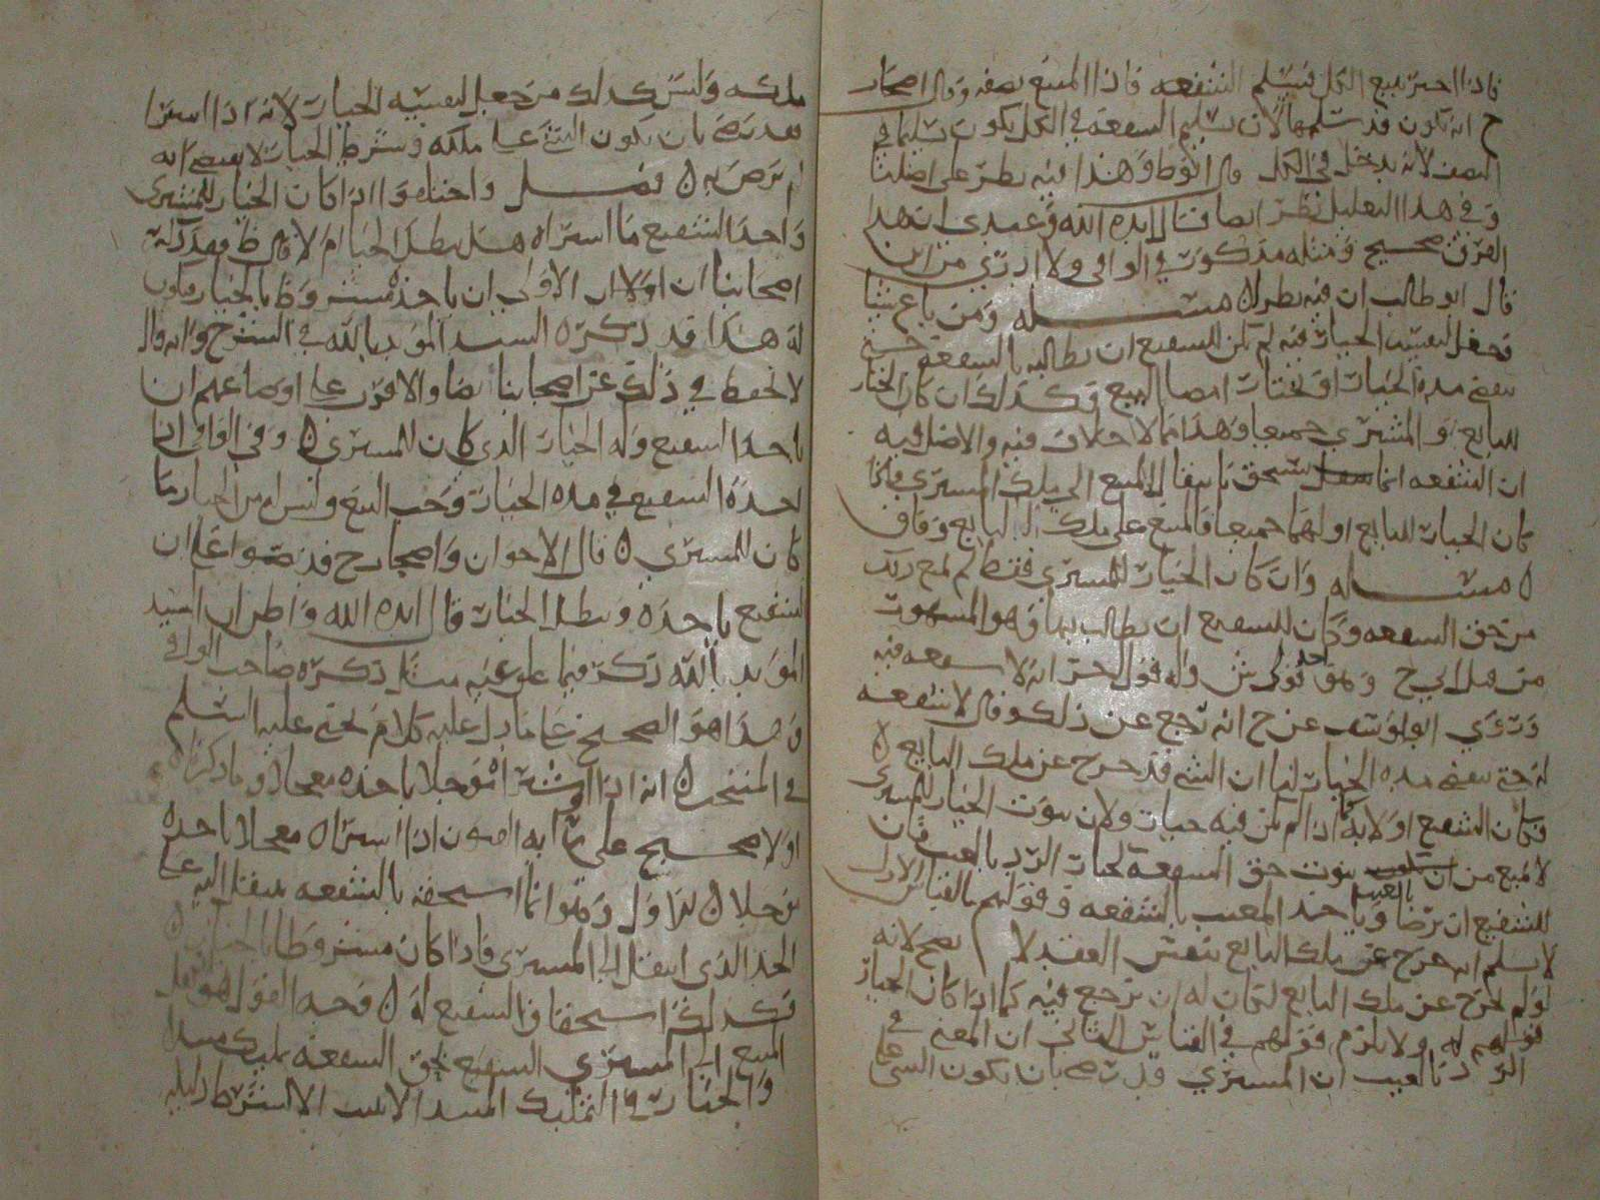 فاذا اخبر ببيع الكل فيسلم الشفعه فاذا المبيع نصفه وقال اصحاب
ح انه يكون قد سلمها لان تسليم الشفعة في الكل يكون تسليما في
النصف لانه يدخل في الكل قال ابوط وهذا فيه نظر على اصلنا
وفي هذا التعليل نظر ايضا قال ايده الله وعندي ان هذا
الفرق صحيح ومثله مذكور في الوافي ولا ادري من اين
قال ابو طالب ان فيه نظر ه مسله ومن باع شيئا
فجعل لنفسه الخيار فيه لم يكن للشفيع ان يطالبه بالشفعة حتى
تمضي مده الخيار او يختار امضا البيع وكذلك ان كان الخيار
للبايع او المشتري جميعا وهذا مما لا خلاف فيه والاصل فيه
ان الشفعه انما تستحق بانتقال المبيع الى ملك المشتري فاذا
كان الخيار للبايع او لهما جميعا فالمبيع على ملك البايع وفاق
ه مسله وان كان الخيار للمشتري فقط لم يمنع ذلك
من حق الشفعه وكان للشفيع ان يطالب بها وهو المشهور
من قول ابي ح وهو احد قولي ش وله قول اخر انه لا شفعه فيه
وروي ابو يوسف عن ح انه رجع عن ذلك وقال لا شفعه
له حتى تمضي مده الخيار لنا ان الشي قد خرج عن ملك البايع ه
فكان الشفيع اولا به كما اذا لم يكن فيه خيار ولان ثبوت الخيار للمشتري
لا يمنع من ثبوت حق الشفعة كخيار الرد بالعيب فان
للشفيع ان يرضا بالعيب وياخذ المعيب بالشفعه وقولهم بالقياس الاول
لا نسلم انه خرج عن ملك البايع ينقض العقد لا يصح لانه
لو لم يخرج عن ملك البايع لكان له ان يرجع فيه كما اذا كان الخيار
له ولا يلزم قولهم في القياس الثاني ان المعنى في
الرد بالعيب ان المشتري قد رضي بان يكون الشي على
ملكه وليس كذلك من جعل لنفسه الخيار لانه اذا اشترا
فقد رضي بان يكون الشي على ملكه وشرط الخيار لا يقتضي انه
لم يرض به ه فصل واختلفوا اذا كان الخيار للمشتري
واخذ الشفيع ما اشتراه هل يبطل الخيار ام لا قال ط فعند
اصحابنا ان اولا الاولى ان ياخذه مشروطا بالخيار فيكون
له هذا قد ذكره السيد المويد بالله في الشرح وانه قال
لا نحفظ في ذلك عن اصحابنا نصا والاقرب على اوضاعهم ان
ياخذ الشفيع وله الخيار الذي كان للمشتري ه وفي الوافي اذا
اخذه الشفيع في مده الخيار وجب البيع وليس له من الخيار ما
كان للمشتري ه قال الاخوان واصحاب ح قد نصوا على ان
الشفيع ياخذه ويبطل الخيار قال ايده الله واظن ان السيد
المويد بالله ذكر فيما علق عنه مثل ذكره صاحب الوافي
وهذا هو الصحيح على ما دل عليه كلام يحيى عليه السلم
في المنتخب ه انه اذا اشترا موجلا ياخذه معجلا وما ذكراه
اولا صحيح على ما انه اذا اشتراه معجلا ياخذه
موجلا ه للاول وهو انما استحقه بالشفعه ينتقل اليه على
الحد الذي انتقل الى المشتري فاذا كان مشروطا بالخيار
فكذلك استحقاق الشفيع له ه وجه القول
المبيع الى المشتري الشفيع بحق الشفعه تمليك
والخيار في التمليك لا يثبت الا بالشرط